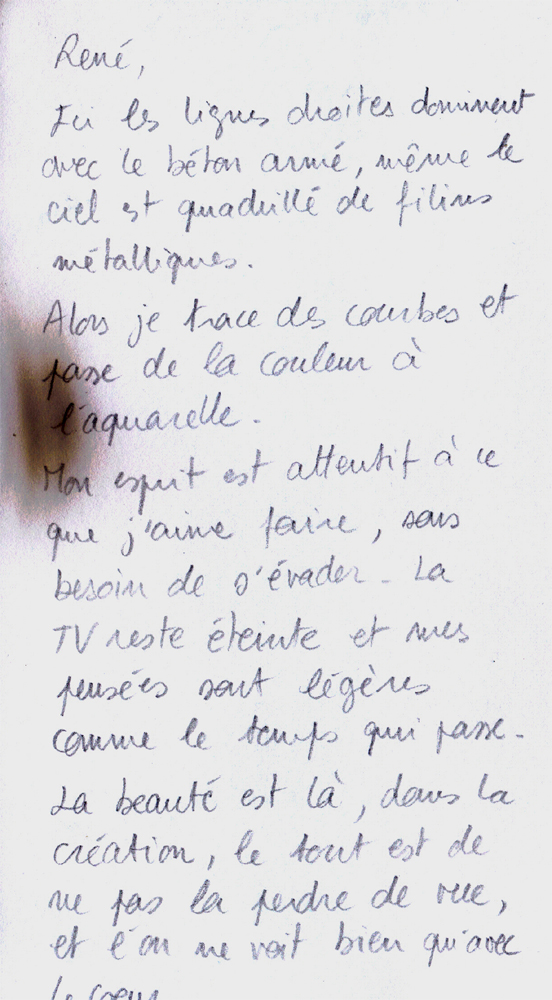 René,
Ici les lignes droites dominent
avec le béton armé, même le
ciel est quadrillé de filins
métalliques.
Alors je trace des courbes et
passe de la couleur à
l'aquarelle.
Mon esprit est attentif à ce
que j'aime faire, sans
besoin de s'évader. La
TV reste éteinte et mes
pensées sont légères
comme le temps qui passe.
La beauté est là, dans la
création, le tout est de
ne pas la perdre de vue,
et l'on ne voit bien qu'avec
le coeur